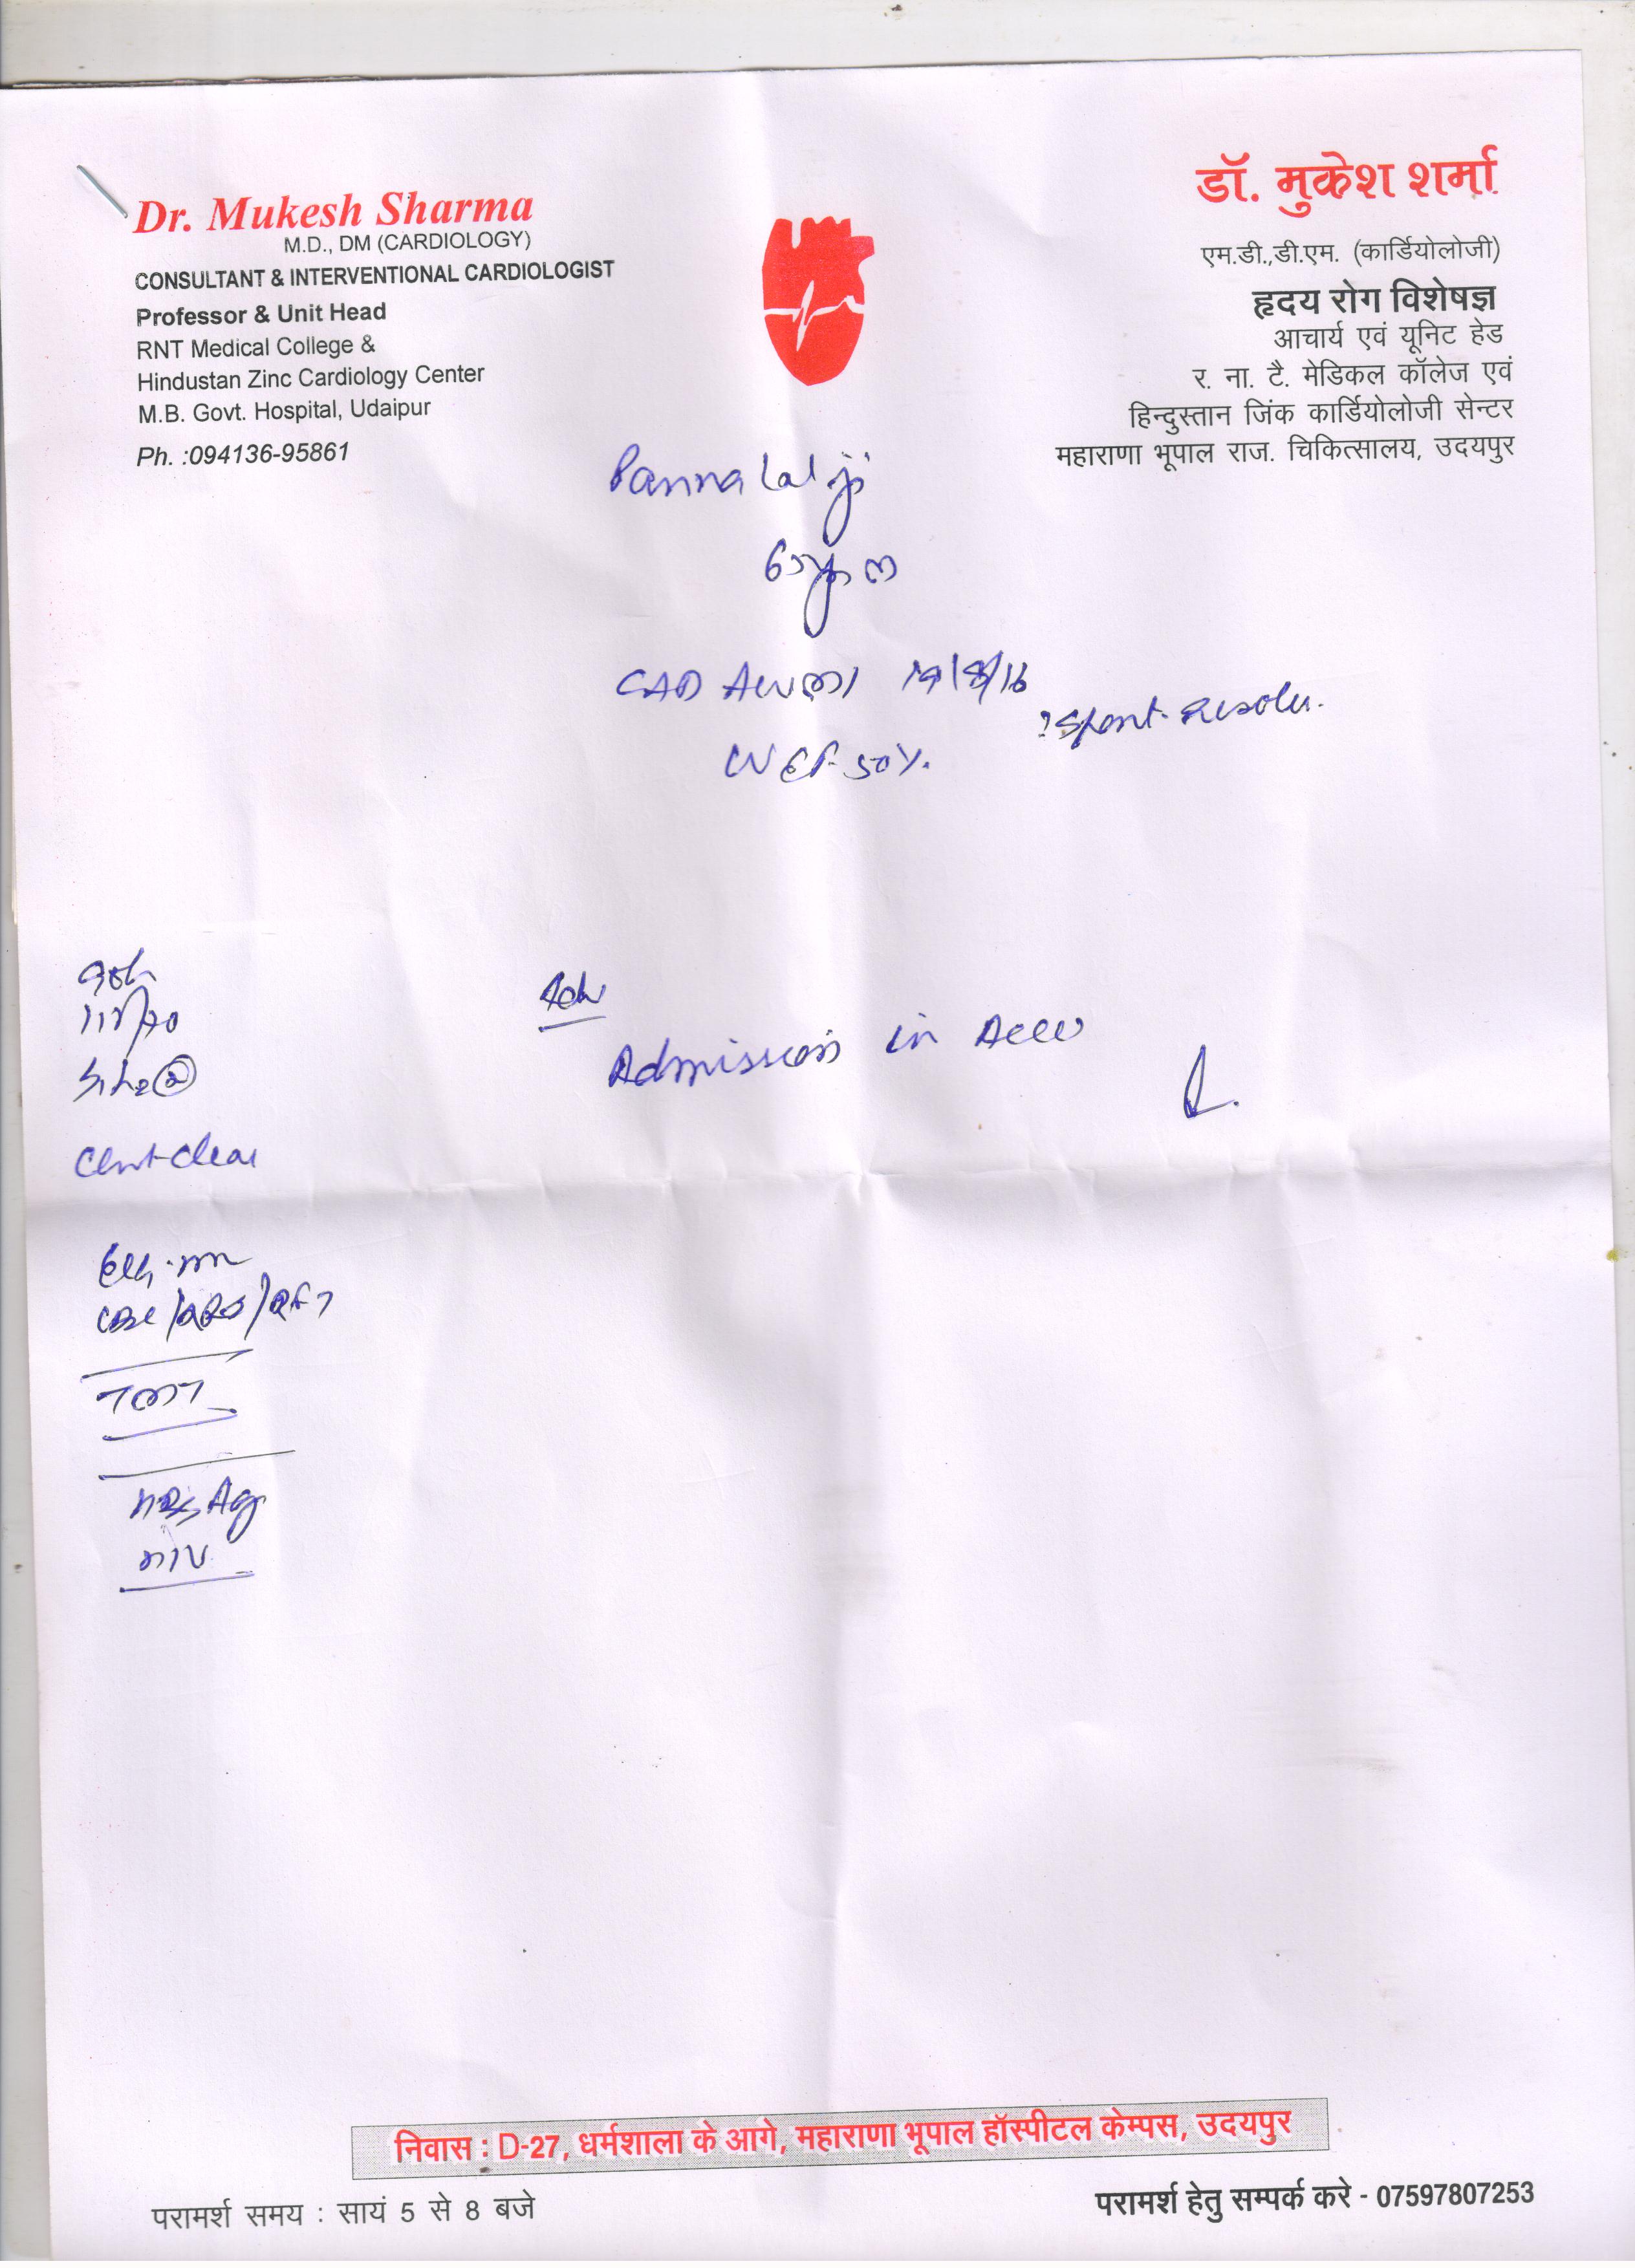 Dr. Mukesh Sharma
M.D., DM (CARDIOLOGY)
CONSULTANT & INTERVENTIONAL CARDIOLOGIST
Professor & Unit Head
RNT Medical College &
Hindustan Zinc Cardiology Center
M.B. Govt. Hospital, Udaipur
Ph. :094136-95861
डॉ. मुकेश शर्मा
एम.डी.,डी.एम. (कार्डियोलोजी)
हृदय रोग विशेषज्ञ
आचार्य एवं यूनिट हेड
र. ना. टै. मेडिकल कॉलेज एवं
हिन्दुस्तान जिंक कार्डियोलोजी सेन्टर
महाराणा भूपाल राज. चिकित्सालय, उदयपुर
Panna Lal ji
CAD AWMI 19/8/16
? Spont. resolu.
LVEF 50%.
Adv
Admission in ACCU
Chest clear
CBC/RBS/RFT
TMT
HBsAg
HIV
निवास : D-27, धर्मशाला के आगे, महाराणा भूपाल हॉस्पीटल केम्पस, उदयपुर
परामर्श समय : सायं 5 से 8 बजे
परामर्श हेतु सम्पर्क करे - 07597807253